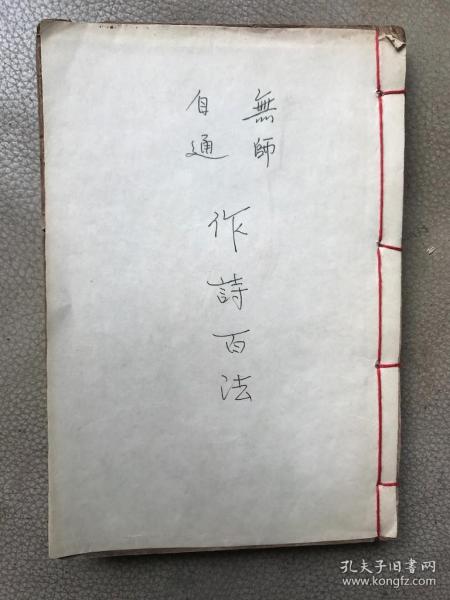 無師
自通
作詩百法
孔夫子旧书网
www.kongfz.com